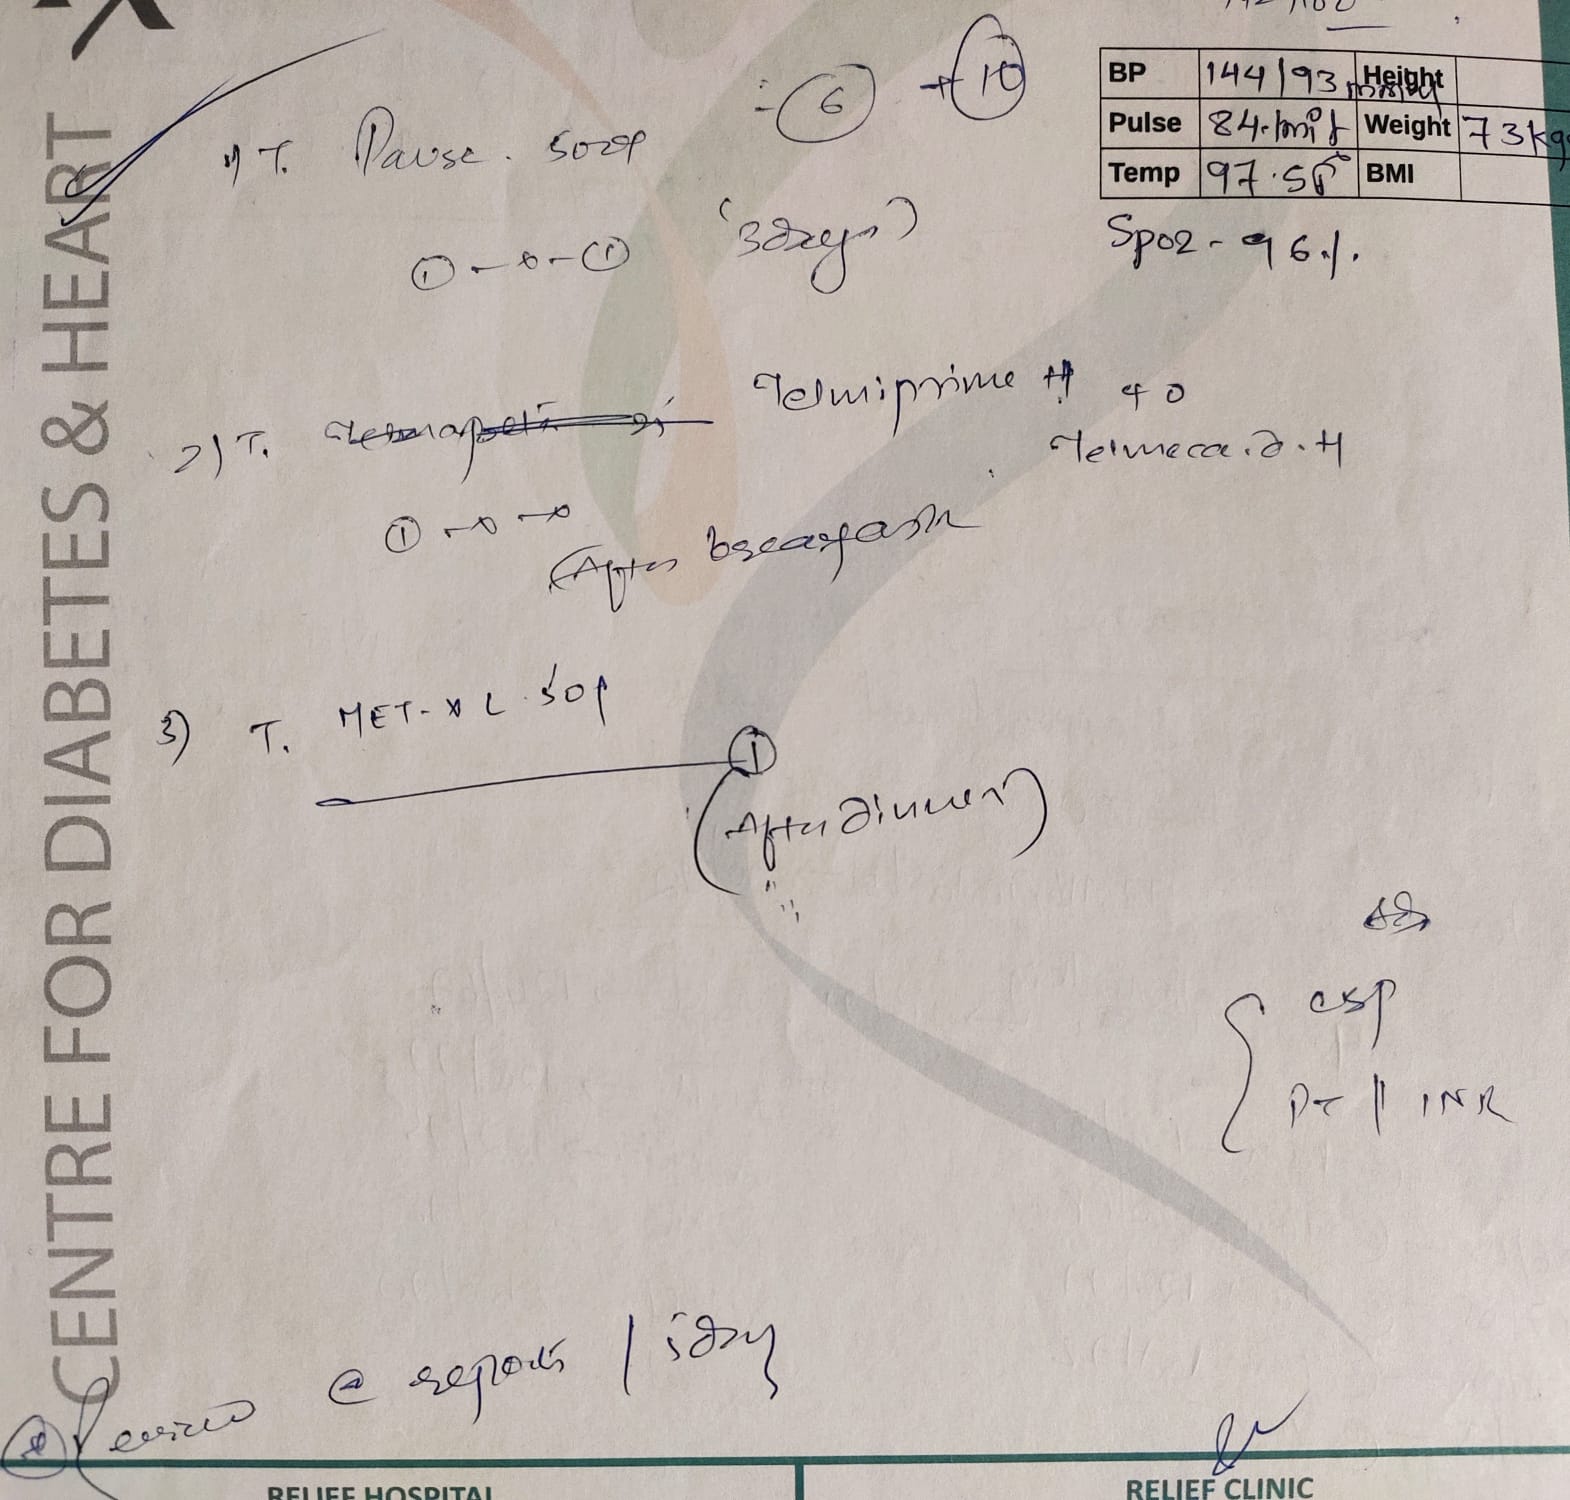 CENTRE FOR DIABETES & HEART
- 6 + 10
BP 144/93 mmHg Height
Pulse 84/mit Weight 73kgs
Temp 97.5F BMI
Spo2 - 96%
1) T. Pause. 500
1 - 0 - 1 (3days)
2) T. Telmiprime H 40
Telmeca.D.H
1 - 0 - 0
(After breakfast
3) T. MET-XL 50
1
(After dinner)
PT / INR
Review @ reports /
RELIEF HOSPITAL
RELIEF CLINIC